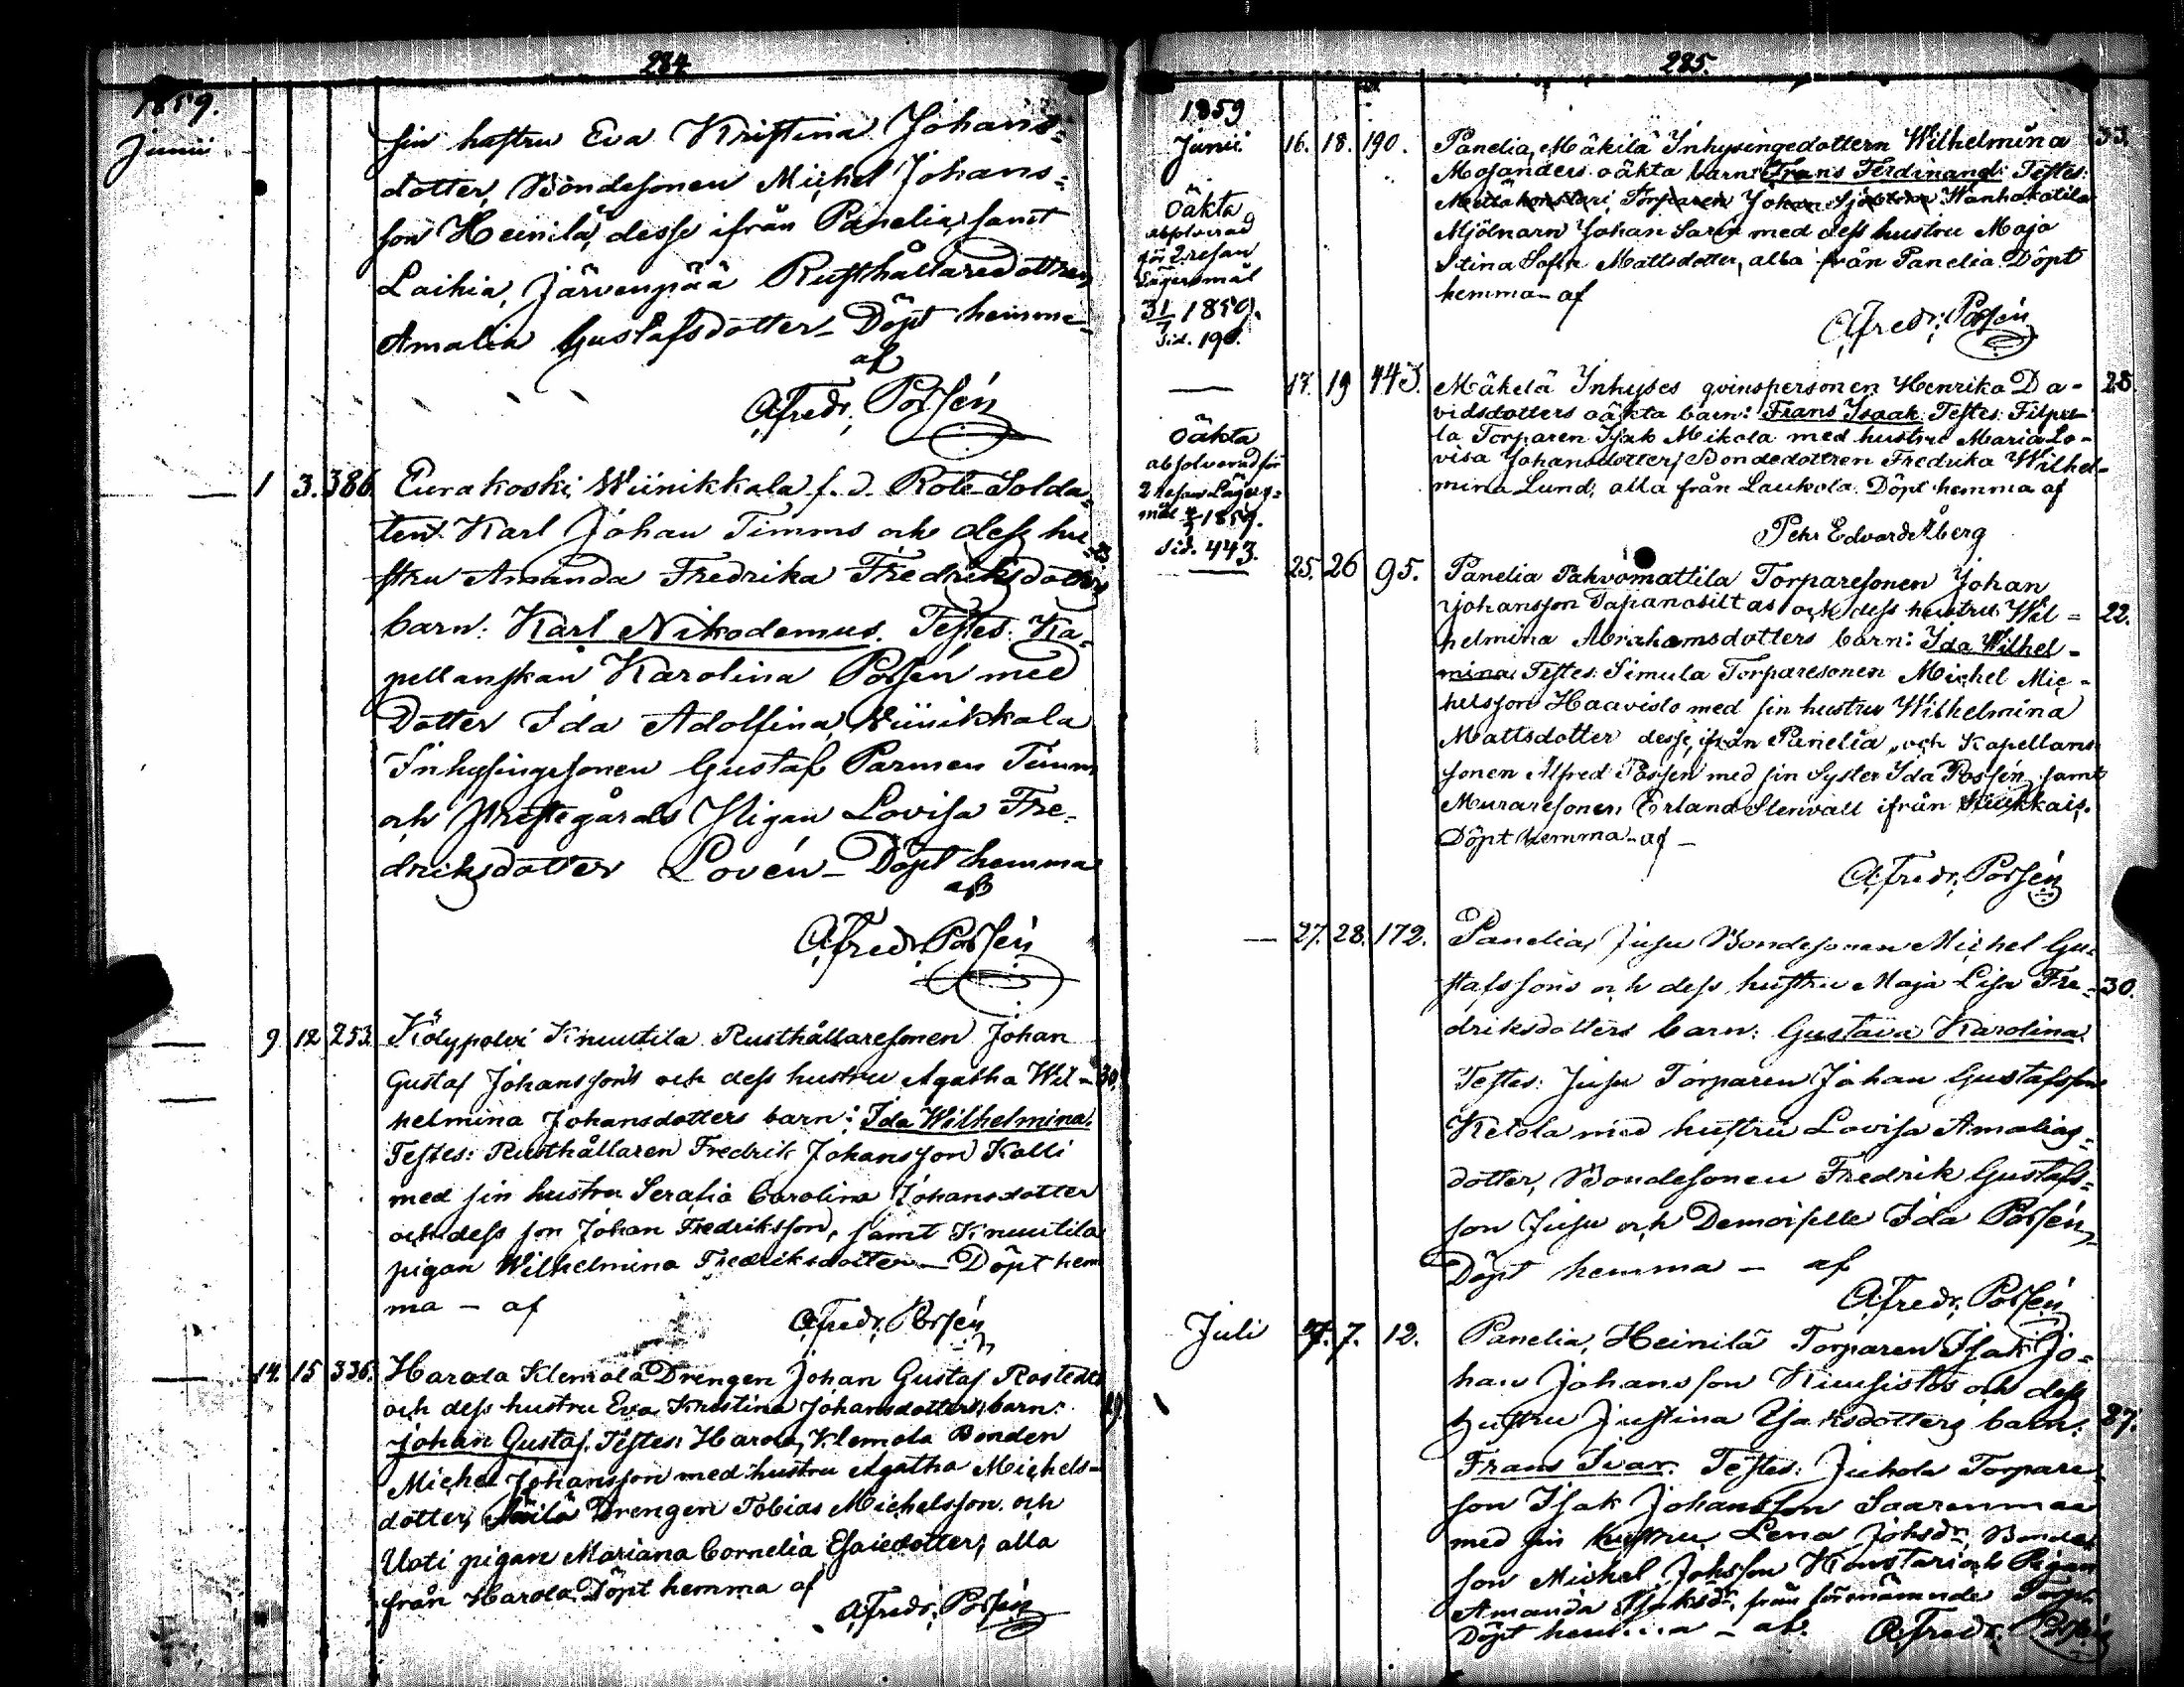 284
1859.
Junii
sin hustru Eva Kristina Johans=
dotter, Bondesonen Michel Johans=
son Heinilä, desse ifrån Panelia, samt
Laihia, Järvenpää Rusthållaredottren
Amalia Gustafsdotter – Döpt hemma
af
Afredr. Possén
1 3. 386. Eurakoski Wiinikkala f. d. Rote Solda=
ten Karl Johan Timms och dess hu=
stru Amanda Fredrika Fredriksdotters
barn: Karl Nikodemus. Testes: Ka=
pellanskan Karolina Possén med
Dotter Ida Adolfina, Wiinikkala
Inhysingesonen Gustaf Parmen Timm
och Prestegårds Pigan Lovisa Fre=
driksdotter Lovén – Döpt hemma
af
Afredr. Possén
9 12 253. Köylypolvi Knuutila Rusthållaresonen Johan
Gustaf Johanssons och dess hustru Agatha Wil= 30.
helmina Johansdotters barn: Ida Wilhelmina.
Testes: Rusthållaren Fredrik Johansson Kalli
med sin hustru Serafia Carolina Johansdotter
och dess son Johan Fredriksson, samt Knuutila
pigan Wilhelmina Fredriksdotter – Döpt hem
ma – af
Afredr. Possén
14. 15 336. Harola Klemola Drengen Johan Gustaf Rostedts
och dess hustru Eva Kristina Johansdotters barn:
Johan Gustaf. Testes: Harola, Klemola Bonden
Michel Johansson med hustru Agatha Michels=
dotter, Drengen Tobias Michelsson och
Uoti pigan Mariana Cornelia Esaiedotter, alla
från Harola. Döpt hemma af
Afredr. Possén
285.
1859
Junii 16. 18. 190. Panelia, Mäkilä Inhysingedottern Wilhelmina 33.
Mosanders oäkta barn: Frans Ferdinand: Testes:
Torparen Johan Wanhakatila
Mjölnarn Johan Sarin med dess hustru Maja
Stina Sofia Mattsdotter, alla från Panelia. Döpt
hemma – af
Afredr. Possén
Oäkta
absolverad
för 2. resan
Lägersmål
31/7 1859.
Sid. 190.
17. 19 443. Mäkelä Inhyses qvinspersonen Henrika Da= 28.
vidsdotters oäkta barn: Frans Isaak. Testes: Filpu=
la Torparen Isak Mikola med hustru Maria Lo=
visa Johansdotter, Bondedottren Fredrika Wilhel=
mina Lund, alla från Laukola. Döpt hemma af
Pehr Edvard Åberg
Oäkta
absolverad för
2 resan Lägers=
mål 1859.
Sid. 443.
25. 26 95. Panelia Pahvomattila Torparesonen Johan
Johansson Tapanasiltas och dess hustru Wil= 22.
helmina Abrahamsdotters barn: Ida Wilhel=
mina. Testes: Simula Torparesonen Michel Mic=
helsson Haavisto med sin hustru Wilhelmina
Mattsdotter desse ifrån Panelia, och Kapellans
sonen Alfred Possén med sin Syster Ida Possén, samt
Muraresonen Erland Stenvall ifrån
Döpt hemma – af –
Afredr. Possén
27. 28. 172. Panelia, Juju Bondesonen Michel Gu=
stafssons och dess hustru Maja Lisa Fre= 30.
driksdotters barn: Gustava Karolina.
Testes: Juju Torparen Johan Gustafsson
Ketola med hustru Lovisa Amalias=
dotter, Bondesonen Fredrik Gustafs=
son Juju och Demoiselle Ida Possén,
Döpt hemma – af
Afredr. Possén
Juli 7. 12. Panelia, Heinilä Torparen Isak Jo=
han Johansson Kuusistos och dess
hustru Justina Isaksdotters barn: 27.
Frans Ivar. Testes: Juhola Torpare
son Isak Johansson Saarenmaa
med sin hustru Lena Johsdr, Bonde
son Michel Johsson Konstari och Pigan
Amanda Isaksdr, från förenämnde Torp.
Döpt hemma – af. Afredr. Possén